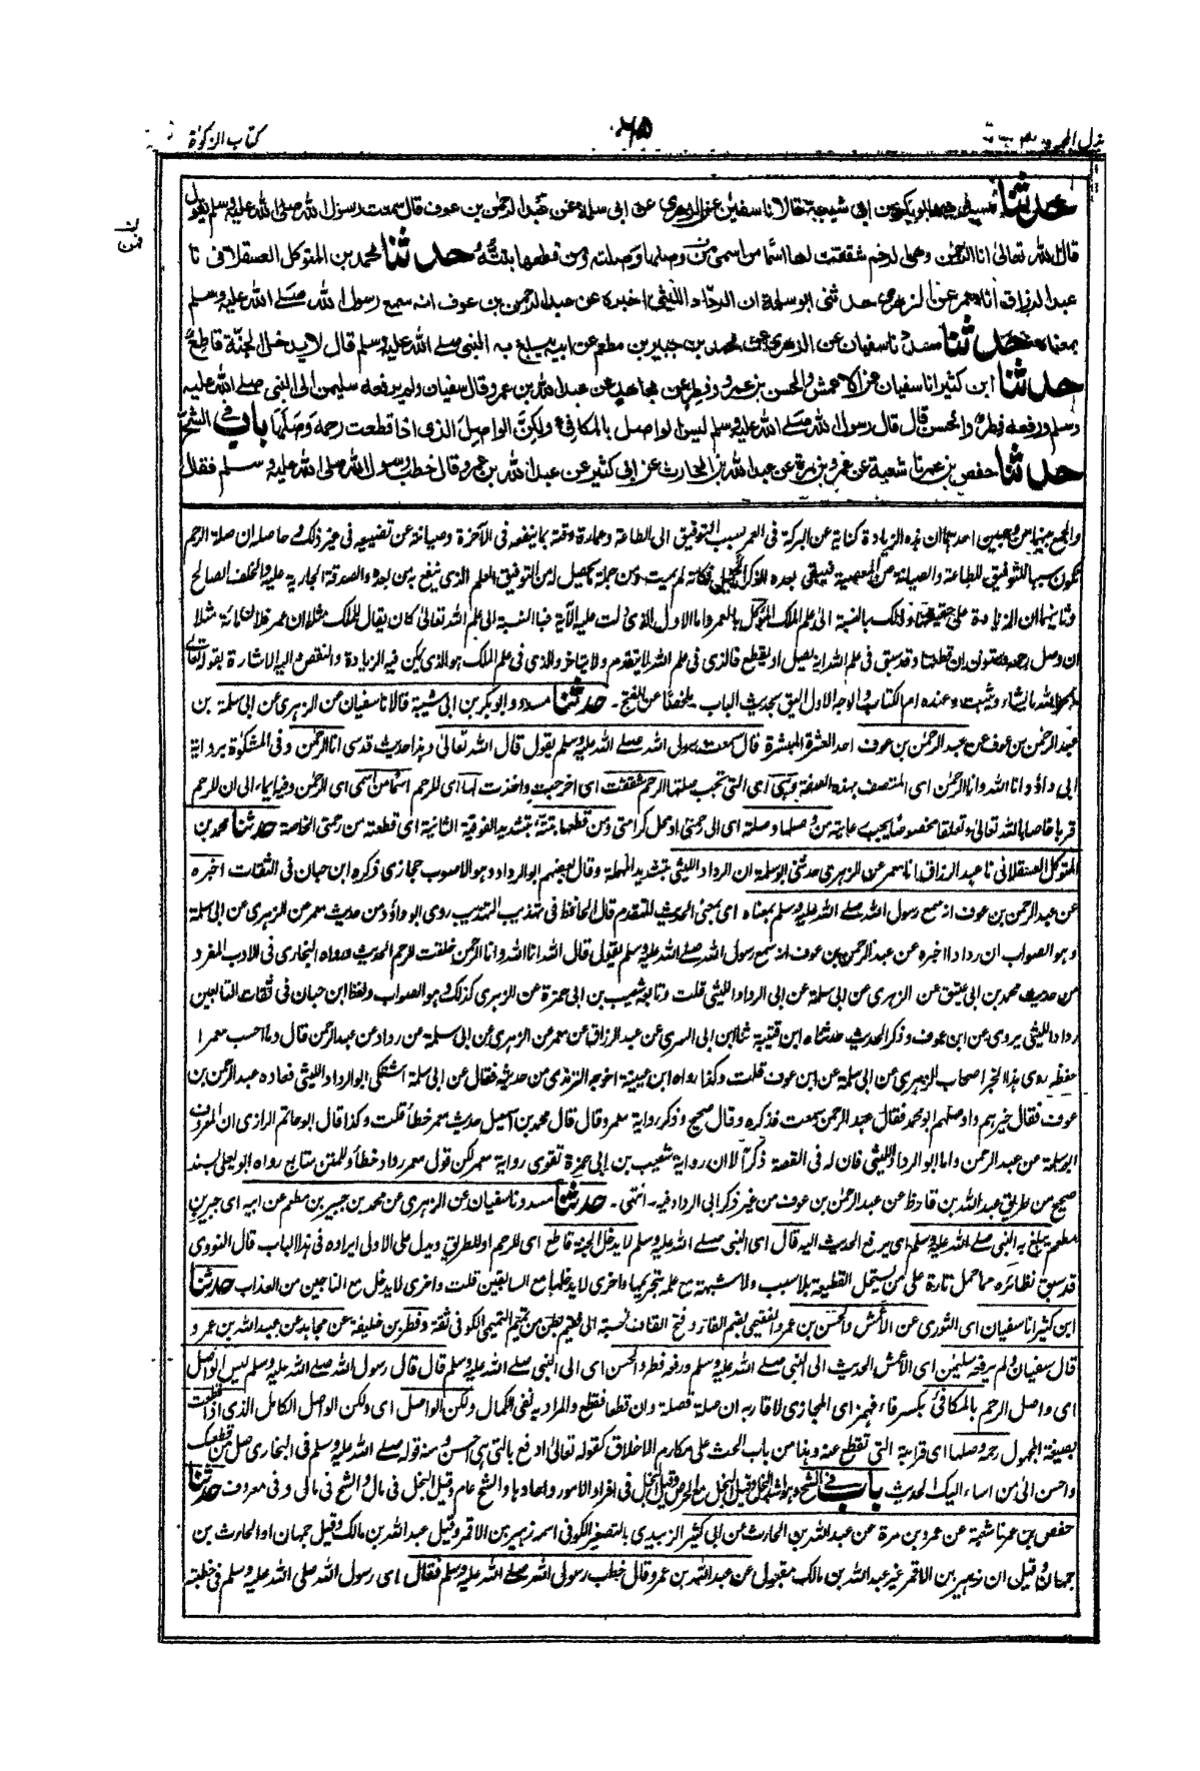 كتاب الزكوٰة
٦٥
بذل المجهود
حدثنا مسدد وابوبكر بن ابى شيبة قالا نا سفين عن الزهرى عن ابى سلمة عن عبد الرحمٰن بن عوف قال سمعت رسول الله صلى الله عليه وسلم يقول
قال الله تعالىٰ انا الرحمٰن وهى الرحم شققت لها اسمًا من اسمى من وصلها وصلته ومن قطعها بتتّه حدثنا محمد بن المتوكل العسقلانى نا
عبد الرزاق انا معمر عن الزهرى حدثنى ابو سلمة ان الردّاد الليثى اخبره عن عبد الرحمٰن بن عوف انه سمع رسول الله صلے الله عليه وسلم
بمعناه حدثنا مسدد نا سفيان عن الزهرى عن محمد بن جبير بن مطعم عن ابيه يبلغ به النبى صلے الله عليه وسلم قال لا يدخل الجنة قاطع
حدثنا ابن كثير انا سفيان عن الاعمش والحسن بن عمرو وفطر عن مجاهد عن عبد الله بن عمرو قال سفيان ولم يرفعه سليمن الى النبى صلے الله عليه
وسلم ورفعه فطر والحسن قال قال رسول الله صلے الله عليه وسلم ليس الواصل بالمكافئ ولكنّ الواصل الذى اذا قطعت رحمه وصلها باب فى الشح
حدثنا حفص بن عمر نا شعبة عن عمرو بن مرة عن عبد الله بن الحارث عن ابى كثير عن عبد الله بن عمرو قال خطب رسول الله صلى الله عليه وسلم فقال
والجمع بينهما من وجهين احدهما ان هذه الزيادة كناية عن البركة فى العمر بسبب التوفيق الى الطاعة وعمارة وقته بما ينفعه فى الآخرة وصيانة عن تضييعه فى غير ذلك وحاصله ان صلة الرحم
تكون سببا للتوفيق للطاعة والصيانة عن المعصية فيبقى بعده الذكر الجميل فكانه لم يمت ومن جملة ما يحصل له من التوفيق العلم الذى ينتفع به من بعده والصدقة الجارية عليه والخلف الصالح
وثانيهما ان الزيادة على حقيقتها وذلك بالنسبة الى علم الملك الموكل بالعمر واما الاول الذى دلت عليه الآية فبالنسبة الى علم الله تعالىٰ كان يقال للملك مثلا ان عمر فلان مائة مثلا
ان وصل رحمه وستون ان قطعها وقد سبق فى علم الله انه يصل او يقطع فالذى فى علم الله لا يتقدم ولا يتأخر والذى فى علم الملك هو الذى يمكن فيه الزيادة والنقص واليه الاشارة بقوله تعالىٰ
يمحو الله ما يشاء ويثبت وعنده ام الكتاب والوجه الاول اليق بحديث الباب ملخصًا عن الفتح۔ حدثنا مسدد وابو بكر بن ابى شيبة قالا نا سفيان عن الزهرى عن ابى سلمة بن
عبد الرحمٰن بن عوف عن عبد الرحمٰن بن عوف احد العشرة المبشرة قال سمعت رسول الله صلے الله عليه وسلم يقول قال الله تعالىٰ وهذا حديث قدسى انا الرحمٰن وفى المشكوٰة برواية
ابى داؤد انا الله وانا الرحمٰن اى المتصف بهذه الصفة وهى اى التى تجب صلتها الرحم شققت اى اخرجت واخذت لها اى للرحم اسمًا من اسمى اى الرحمٰن وفيه ايماء الى ان للرحم
قربا خاصا بالله تعالىٰ وتعلقا مخصوصا يجب رعايته من وصلها وصلته اى الى رحمتى او محل كرامتى ومن قطعها بتتّه بتشديد الفوقية الثانية اى قطعته من رحمتى الخاصة حدثنا محمد بن
المتوكل العسقلانى نا عبد الرزاق انا معمر عن الزهرى حدثنى ابو سلمة ان الرداد الليثى بتشديد المهملة وقال بعضهم ابو الرداد وهو الاصوب حجازى ذكره ابن حبان فى الثقات اخبره
عن عبد الرحمٰن بن عوف انه سمع رسول الله صلے الله عليه وسلم بمعناه اى بمعنى الحديث المتقدم قال الحافظ فى تهذيب التهذيب روى ابو داؤد من حديث معمر عن الزهرى عن ابى سلمة
وهو الصواب ان ردادا اخبره عن عبد الرحمٰن بن عوف انه سمع رسول الله صلے الله عليه وسلم يقول قال الله انا الله وانا الرحمٰن خلقت الرحم الحديث ورواه البخارى فى الادب المفرد
من حديث محمد بن ابى عتيق عن الزهرى عن ابى سلمة عن ابى الرداد الليثى قلت وتابعه شعيب بن ابى حمزة عن الزهرى كذلك وهو الصواب ولفظ ابن حبان فى ثقات التابعين
رداد الليثى يروى عن ابن عوف وذكر الحديث حدثناه ابن قتيبة ثنا ابن ابى السرى عن عبد الرزاق عن معمر عن الزهرى عن ابى سلمة عن رداد عن عبد الرحمٰن قال وما احسب معمرا
حفظه روى هذا الخبر اصحاب الزهرى عن ابى سلمة عن ابن عوف قلت وكذا رواه ابن عيينة اخرجه الترمذى من حديثه فقال عن ابى سلمة اشتكى ابو الرداد الليثى فعاده عبد الرحمٰن بن
عوف فقال خيرهم واوصلهم ابو محمد فقال عبد الرحمٰن سمعت فذكره وقال صحيح وذكر رواية معمر وقال قال محمد بن اسمٰعيل حديث معمر خطأ قلت وكذا قال ابو حاتم الرازى ان المعروف
ابو سلمة عن عبد الرحمٰن واما ابو الرداد الليثى فان له فى القصة ذكرًا لا ان رواية شعيب بن ابى حمزة تقوى رواية معمر لكن قول معمر رداد خطأ وللمتن متابع رواه ابو يعلى بسند
صحيح من طريق عبد الله بن قارظ عن عبد الرحمٰن بن عوف من غير ذكر ابى الرداد فيه۔ انتهى۔ حدثنا مسدد نا سفيان عن الزهرى عن محمد بن جبير بن مطعم عن ابيه اى جبير بن
مطعم يبلغ به النبى صلے الله عليه وسلم اى يرفع الحديث اليه قال اى النبى صلے الله عليه وسلم لا يدخل الجنة قاطع اى للرحم او للطريق ويدل على الاولى ايراده فى هذا الباب قال النووى
قد سبق نظائره مما حمل تارة على من يستحل القطيعة بلا سبب ولا شبهة مع علمه بتحريمها واخرى لا يدخلها مع السابقين قلت واخرى لا يدخل مع الناجين من العذاب حدثنا
ابن كثير انا سفيان اى الثورى عن الاعمش والحسن بن عمرو الفقيمى بضم الفاء وفتح القاف نسبة الى فقيم بطن من تميم التميمى الكوفى ثقة وفطر بن خليفة عن مجاهد عن عبد الله بن عمرو
قال سفيان ولم يرفعه سليمٰن اى الأعمش الحديث الى النبى صلے الله عليه وسلم ورفعه فطر والحسن اى الى النبى صلے الله عليه وسلم قال قال رسول الله صلے الله عليه وسلم ليس الواصل
اى واصل الرحم بالمكافئ بكسر فاء فهمز اى المجازى لاقاربه ان صلة فصلة وان قطعا فقطع والمراد به نفى الكمال ولكن الواصل اى ولكن الواصل الكامل الذى اذا قطعت
بصيغة المجهول رحمه وصلها اى قرابته التى تقطع عنه وهذا من باب الحث على مكارم الاخلاق كقوله تعالىٰ ادفع بالتى هى احسن ومنه قوله صلے الله عليه وسلم فى البخارى صل من قطعك
واحسن الى من اساء اليك الحديث باب فى الشح وهو اشد البخل وقيل البخل مع الحرص وقيل البخل فى افراد الامور وآحادها والشح عام وقيل البخل فى مال والشح فى مال وفى معروف حدثنا
حفص بن عمر نا شعبة عن عمرو بن مرة عن عبد الله بن الحارث عن ابى كثير الزبيدى بالتصغير الكوفى اسمه زهير بن الاقمر وقيل عبد الله بن مالك وقيل جمهان او الحارث بن
جمهان وقيل ان زهير بن الاقمر غير عبد الله بن مالك مقبول عن عبد الله بن عمرو قال خطب رسول الله صلے الله عليه وسلم فقال اى رسول الله صلى الله عليه وسلم فى خطبته